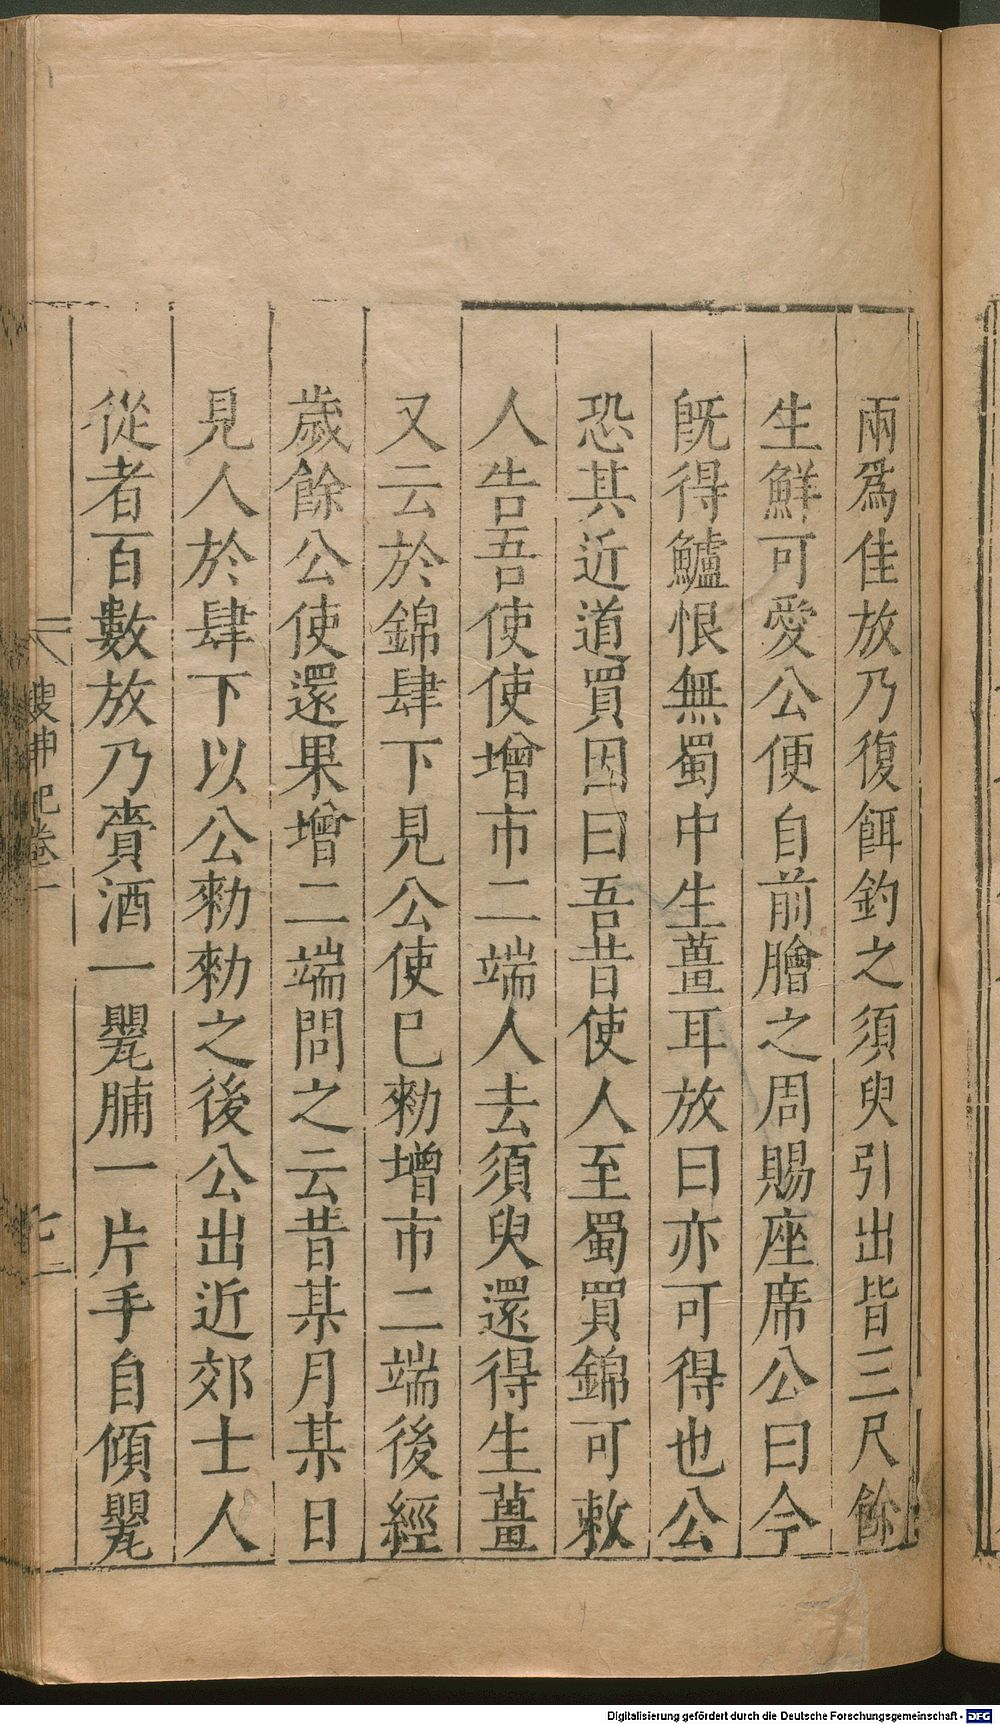 兩爲佳放乃復餌釣之須臾引出皆三尺餘
生鮮可愛公便自前膾之周賜座席公曰今
旣得鱸恨無蜀中生薑耳放曰亦可得也公
恐其近道買因曰吾昔使人至蜀買錦可敕
人告吾使使增市二端人去須臾還得生薑
又云於錦肆下見公使已勑增市二端後經
歲餘公使還果增二端問之云昔某月某日
見人於肆下以公勑勑之後公出近郊士人
從者百數放乃賫酒一甖脯一片手自傾甖
搜神記卷一
Digitalisierung gefördert durch die Deutsche Forschungsgemeinschaft - DFG